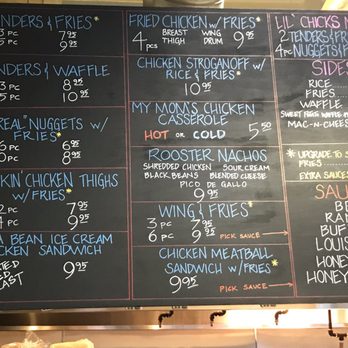 NDERS & FRIES*
3 PC 7 95
PC 9 95
NDERS & WAFFLE
3 PC 8 95
PC 10 95
REAL" NUGGETS W/
FRIES*
PC 6 95
PC 8 95
KIN' CHICKEN THIGHS
W/FRIES*
2 PC 7 95
4 PC 9 95
A BEAN ICE CREAM
CHICKEN SANDWICH
9 95
FRIED CHICKEN W/ FRIES*
4 PCS BREAST WING 9 95
THIGH DRUM
CHICKEN STROGANOFF W/
RICE & FRIES*
10 95
MY MOM'S CHICKEN
CASSEROLE
HOT OR COLD 5 50
ROOSTER NACHOS
SHREDDED CHICKEN SOUR CREAM
BLACK BEANS BLENDED CHEESE
PICO DE GALLO
9 95
WING & FRIES*
3 PC 7 95
6 PC 9 95 PICK SAUCE
CHICKEN MEATBALL
SANDWICH W/FRIES*
9 95 PICK SAUCE
LIL' CHICKS M
2 TENDERS & F
4PC NUGGETS & F
SIDES
RICE
FRIES
WAFFLE
MAC-N-CHEES
*UPGRADE TO S
FRIES
EXTRA SAUCES
SAU
BB
RAN
BUF
LOUIS
HONE
HONEY